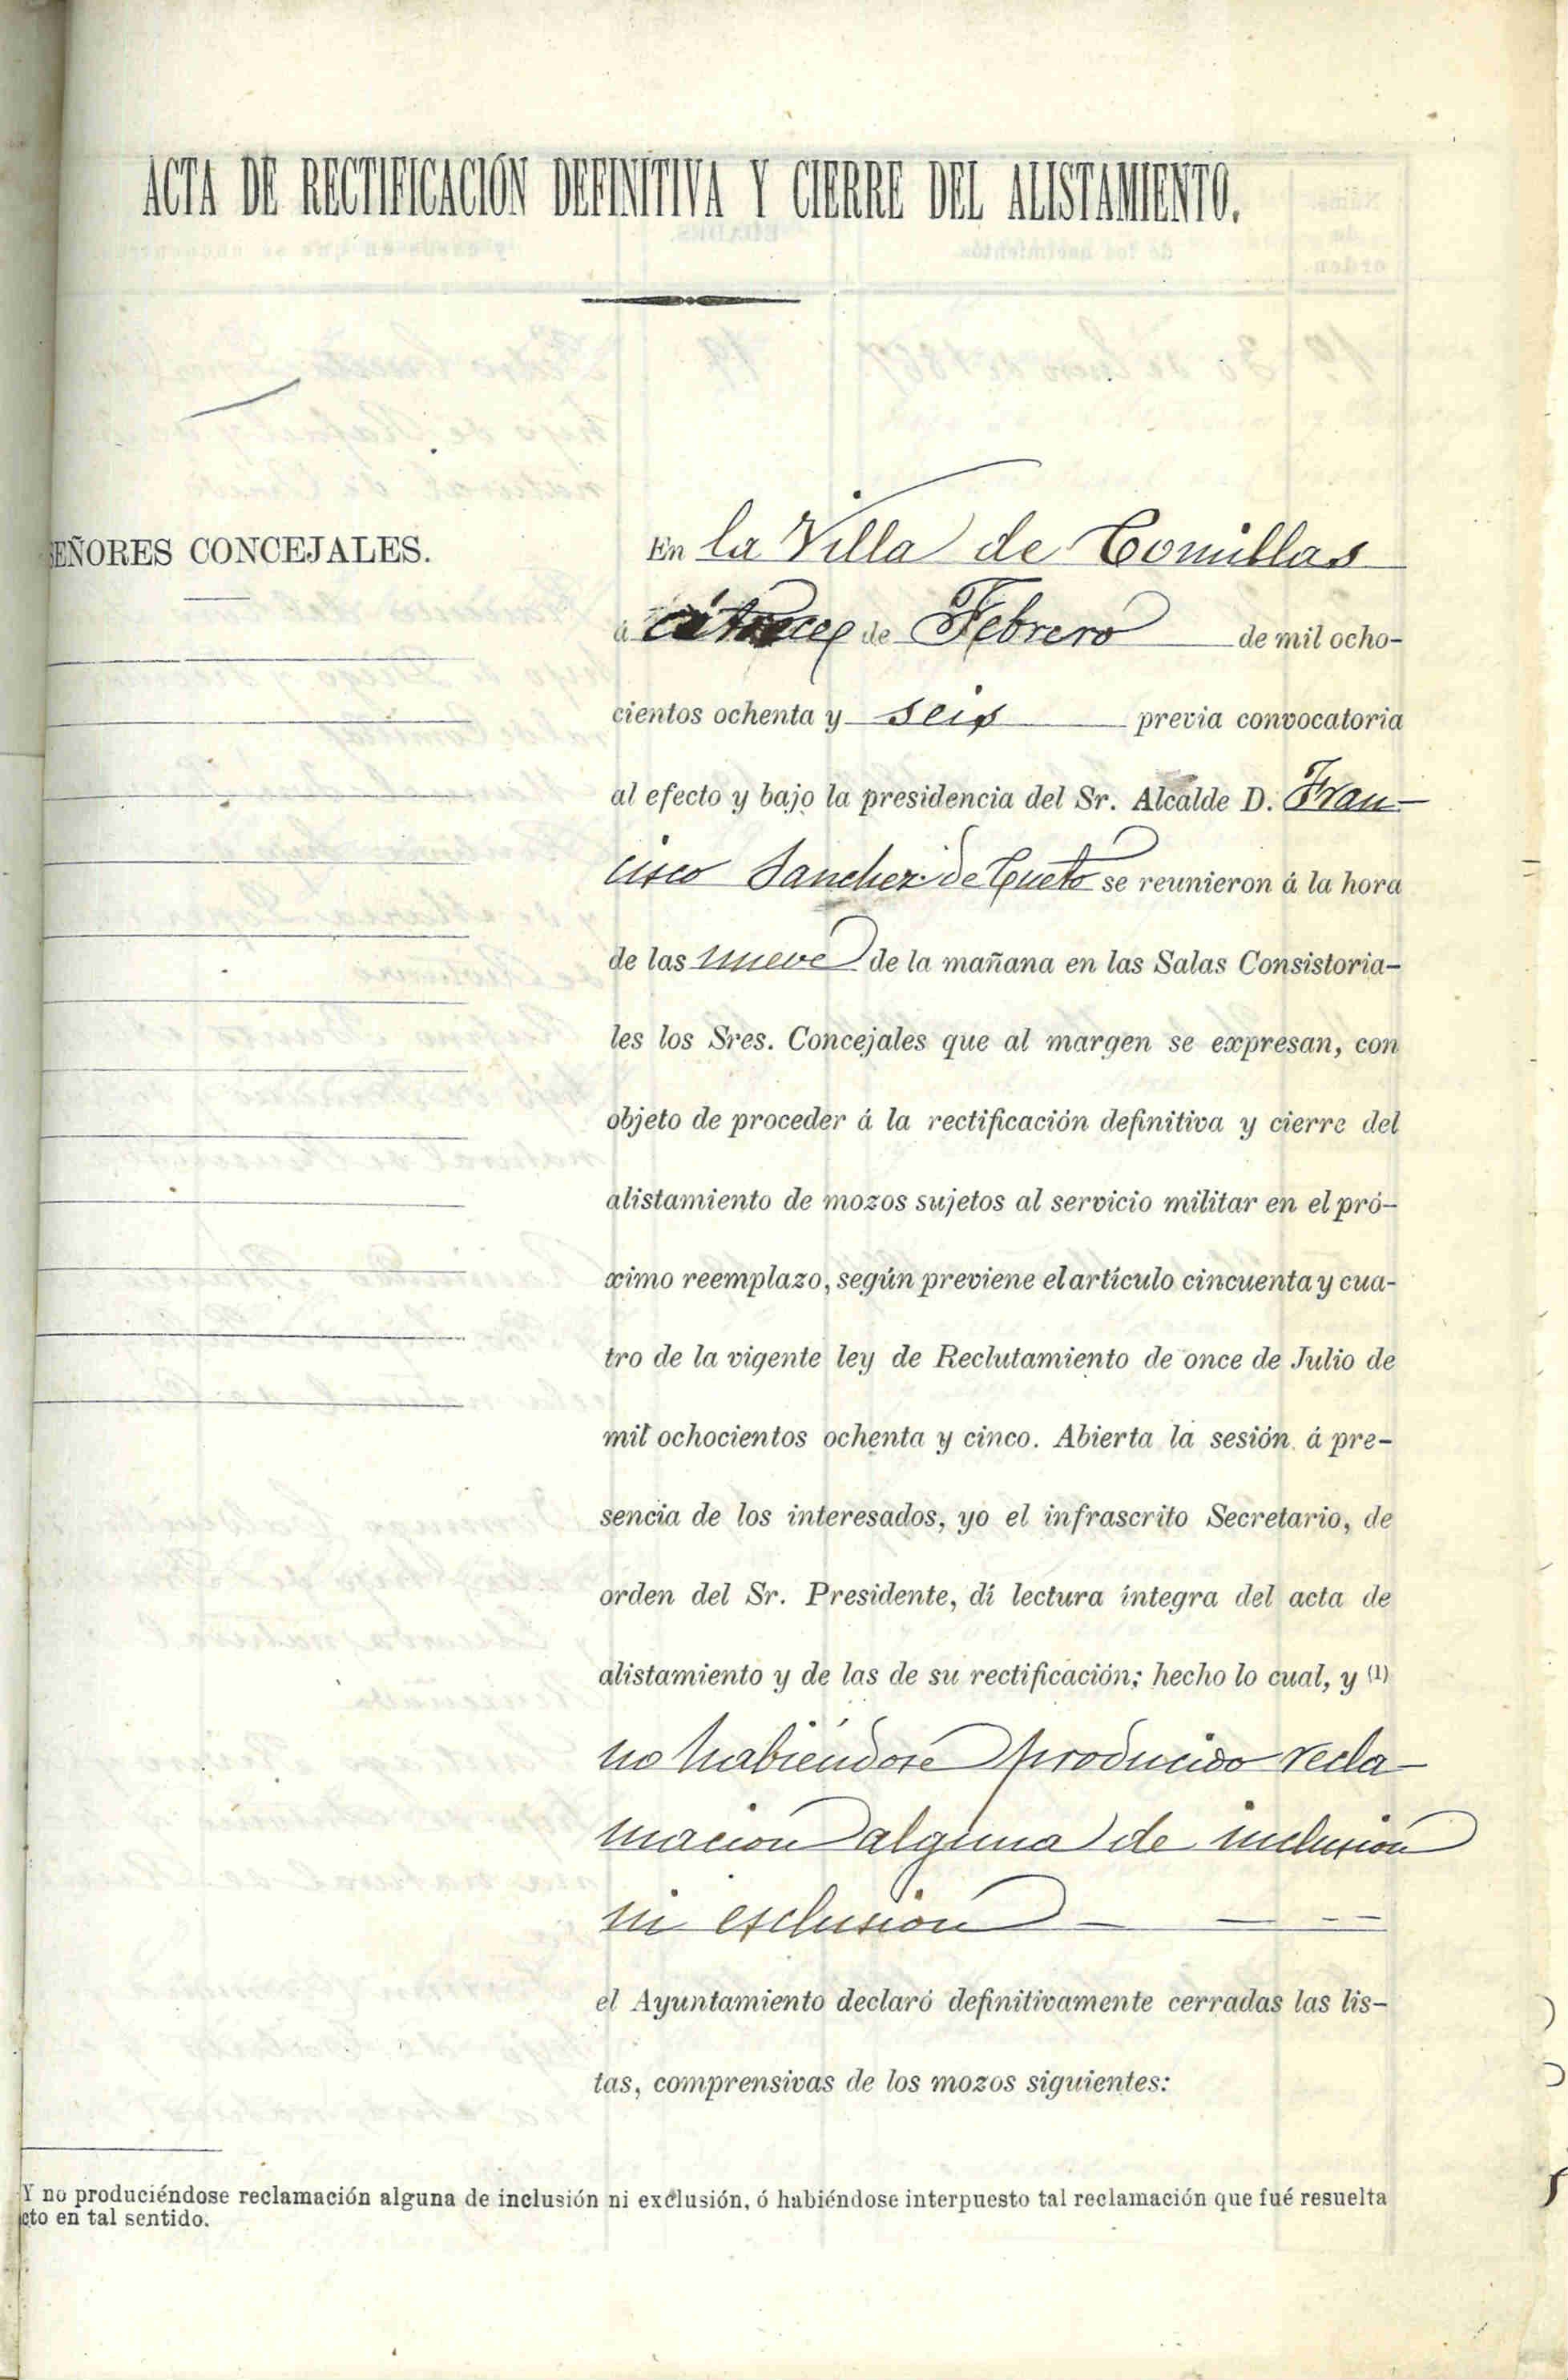 ACTA DE RECTIFICACIÓN DEFINITIVA Y CIERRE DEL ALISTAMIENTO.
SEÑORES CONCEJALES.
En la Villa de Comillas
á de Febrero de mil ocho-
cientos ochenta y seis previa convocatoria
al efecto y bajo la presidencia del Sr. Alcalde D. Fran-
cisco Sanchez de Cueto se reunieron á la hora
de las nueve de la mañana en las Salas Consistoria-
les los Sres. Concejales que al margen se expresan, con
objeto de proceder á la rectificación definitiva y cierre del
alistamiento de mozos sujetos al servicio militar en el pró-
ximo reemplazo, según previene el artículo cincuenta y cua-
tro de la vigente ley de Reclutamiento de once de Julio de
mil ochocientos ochenta y cinco. Abierta la sesión á pre-
sencia de los interesados, yo el infrascrito Secretario, de
orden del Sr. Presidente, dí lectura íntegra del acta de
alistamiento y de las de su rectificación; hecho lo cual, y (1)
no habiéndose producido recla-
macion alguna de inclusion
ni esclusion
el Ayuntamiento declaró definitivamente cerradas las lis-
tas, comprensivas de los mozos siguientes:
Y no produciéndose reclamación alguna de inclusión ni exclusión, ó habiéndose interpuesto tal reclamación que fué resuelta
cto en tal sentido.